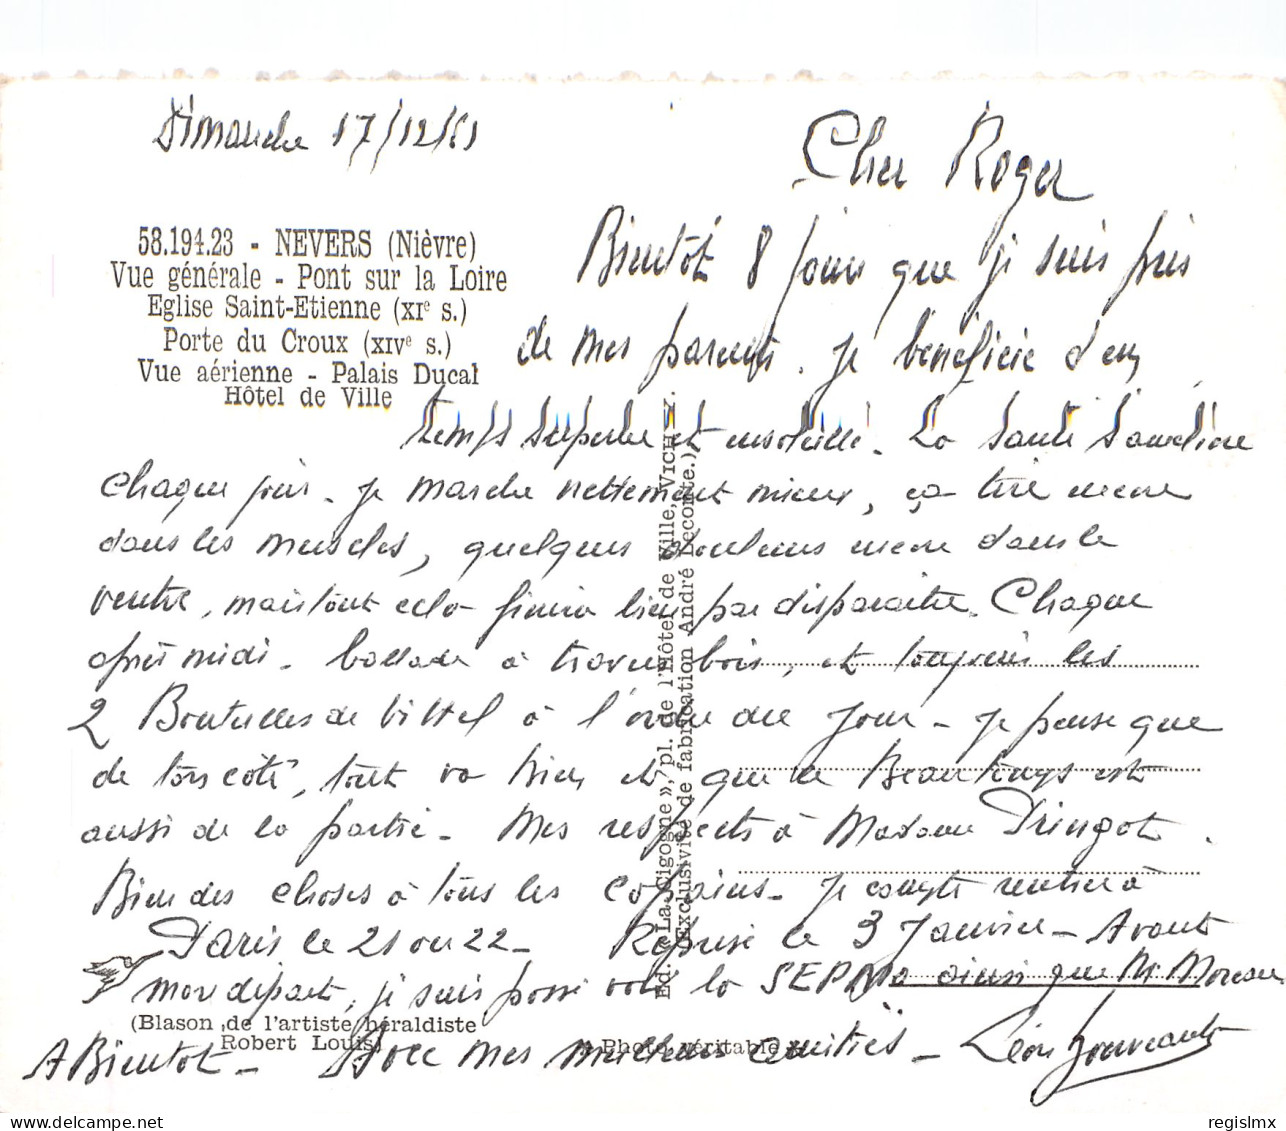 Dimanche 17/12/61
Cher Roger
58.194.23 - NEVERS (Nièvre)
Vue générale - Pont sur la Loire
Eglise Saint-Etienne (XIe s.)
Porte du Croux (XIVe s.)
Vue aérienne - Palais Ducal
Hôtel de Ville
Bientôt 8 jours que je suis près
de mes parents. je bénéficie d'un
temps superbe et ensoleillé. La santé s'améliore
chaque jour. je marche nettement mieux, ça tire encore
dans les muscles, quelques douleurs encore dans le
ventre, mais tout cela finira bien par disparaître. Chaque
après midi. ballade à travers bois, et toujours les
2 Bouteilles de Vittel à l'ordre du jour - je pense que
de ton coté, tout va bien et que le Beau temps est
aussi de la partie - Mes respects à Madame Pringot.
Bien des choses à tous les copains - je compte rentrer à
Paris le 21 ou 22 - Reprise le 3 Janvier - Avant
mon départ, je suis passé voir la ainsi que Mr Moreau
A Bientot - Avec mes meilleures amitiés - Léon
Ed. « La Cigogne », pl. de l'Hôtel de Ville, VICHY.
(Exclusivité de fabrication André Leconte.)
(Blason de l'artiste héraldiste
Robert Louis)
Photo véritable
regislmx